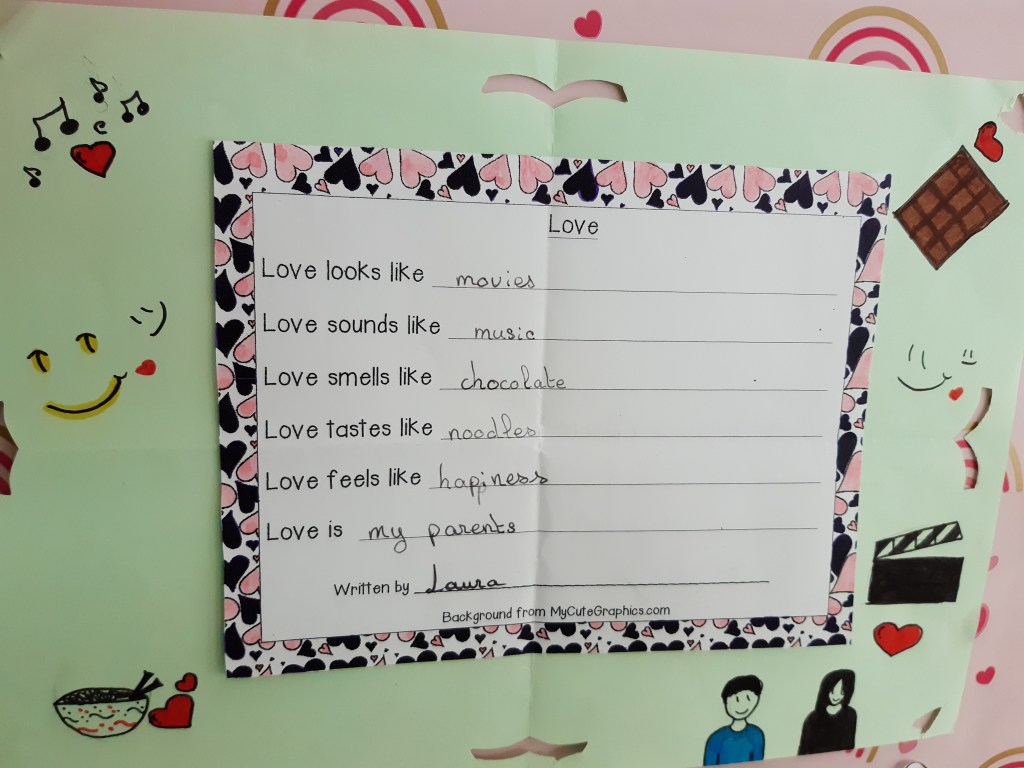 Love
Love looks like movies
Love sounds like music
Love smells like chocolate
Love tastes like noodles
Love feels like hapiness
Love is my parents
Written by Laura
Background from MyCuteGraphics.com